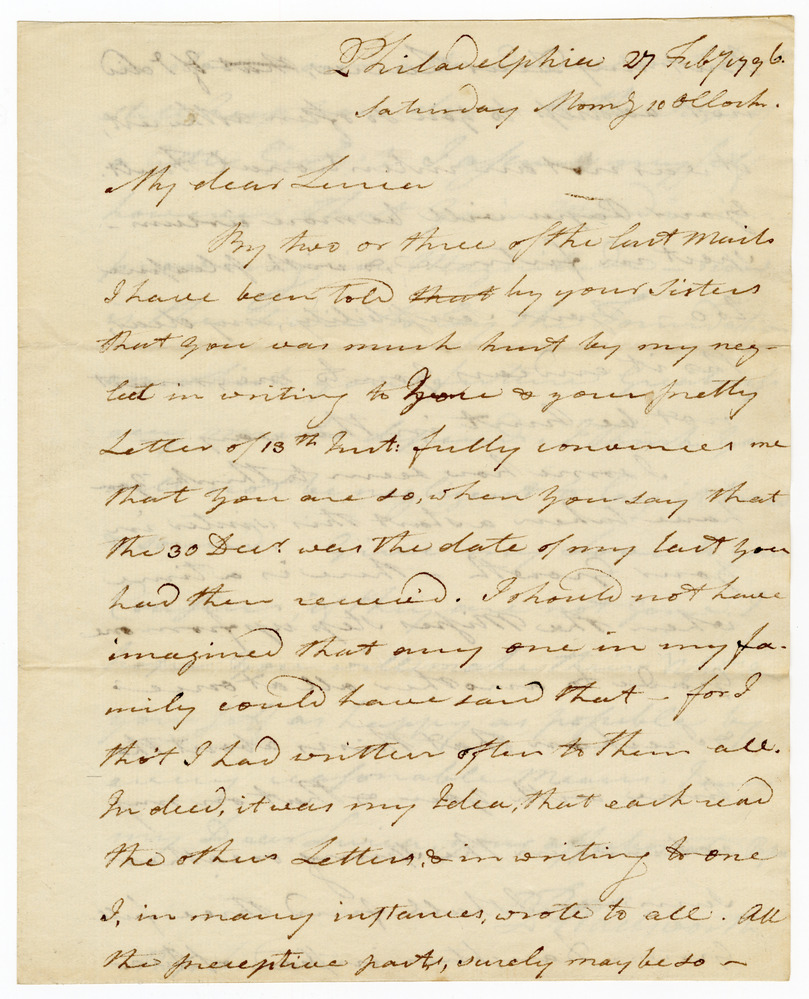 Philadelphia 27 Feby 1796.
Saturday Morng 10 oClock.
My dear Lucia
By two or three of the last Mails
I have been told that by your Sisters
that you was much hurt by my neg-
lect in writing to you & your pretty
Letter of 13th Inst: fully convinces me
that you are so, when you say that
the 30 Decr. was the date of my last you
had then receiv'd. I should not have
imagined that any one in my fa-
mily could have said that – for I
tho't I had written often to them all.
Indeed, it was my Idea, that each read
the others Letters, & in writing to one
I, in many instances, wrote to all. All
the preceptive parts, surely may be so –